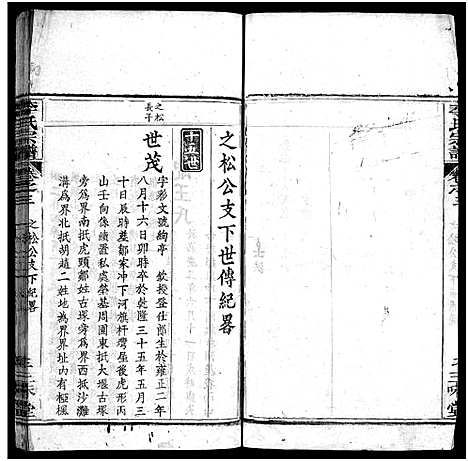 之松公支下世傳紀畧
十五世
之松
長子
世茂
字彩文號絢亭 欽授登仕郎生於雍正二年
八月十六日卯時卒於乾隆三十五年五月三
十日辰時塟鄒家冲下河旗杆灣屋後虎形丙
山壬向像續置私處塋基周圍東抵大堰古塚
旁爲界南抵虎頭鄭姓古塚旁爲界西抵沙灘
溝爲界北抵胡趙二姓地爲界界址內有極楓
李氏宗譜
卷之三
之松公支下紀畧
三味堂
李氏宗譜
卷之三
三味堂